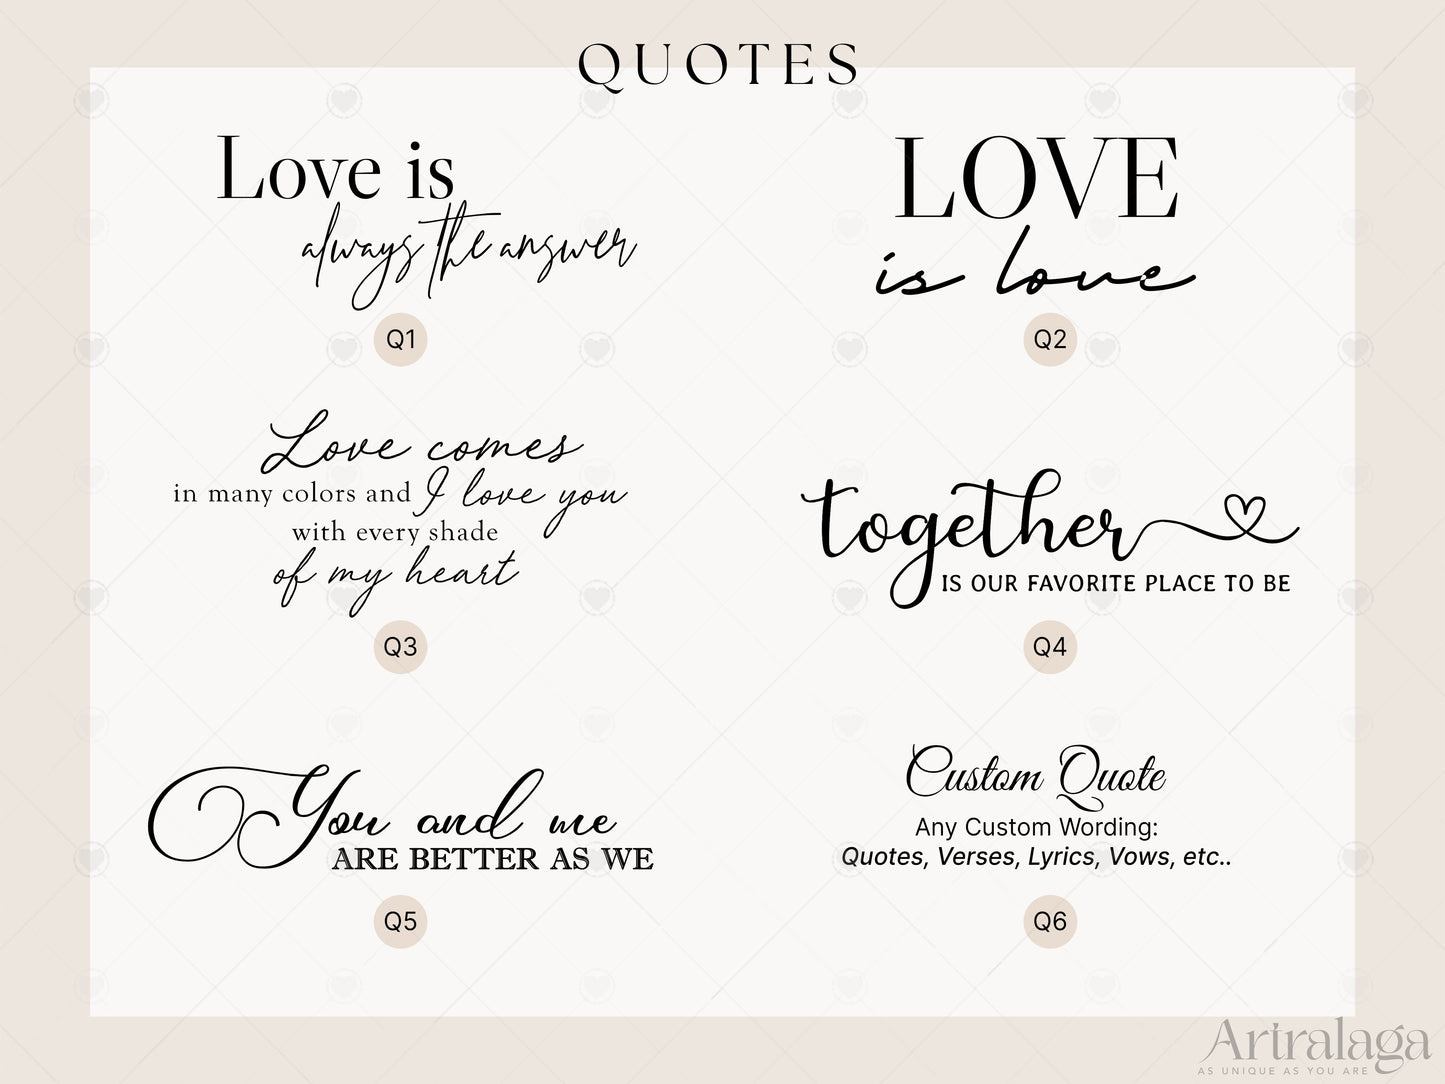 QUOTES
Love is
always the answer
Q1
LOVE
is love
Q2
Love comes
in many colors and I love you
with every shade
of my heart
Q3
together
IS OUR FAVORITE PLACE TO BE
Q4
You and me
ARE BETTER AS WE
Q5
Custom Quote
Any Custom Wording:
Quotes, Verses, Lyrics, Vows, etc..
Q6
Artralaga
AS UNIQUE AS YOU ARE